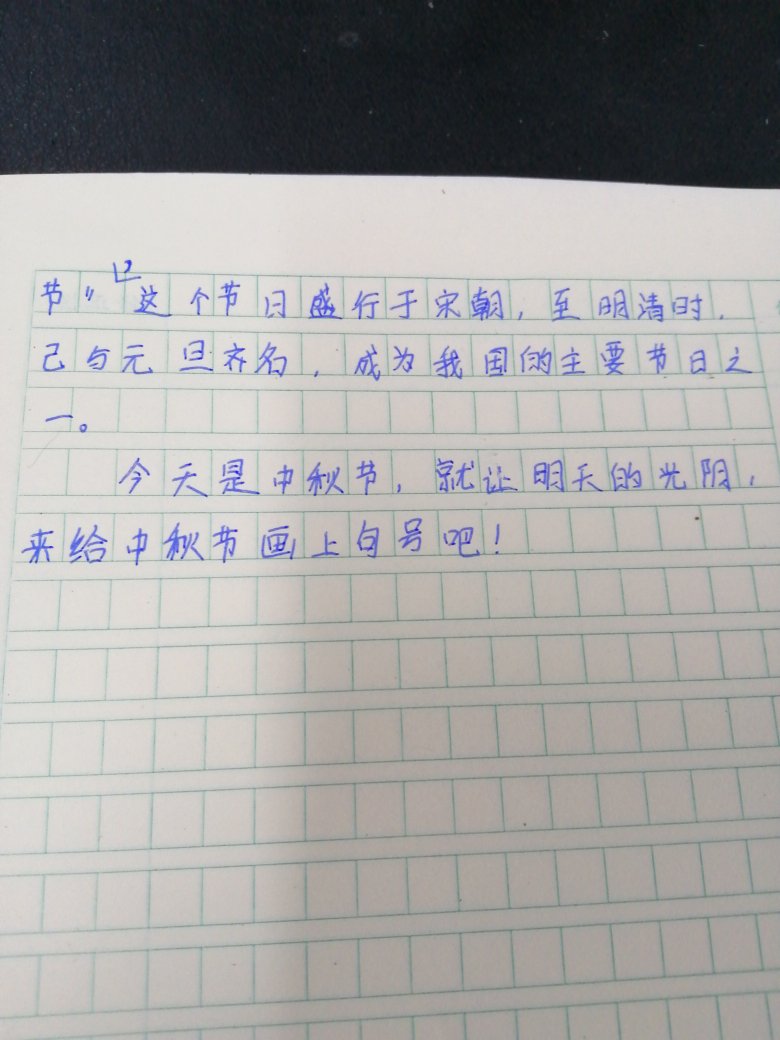 节”这个节日盛行于宋朝，至明清时，
己与元旦齐名，成为我国的主要节日之
一。
今天是中秋节，就让明天的光阴，
来给中秋节画上句号吧！